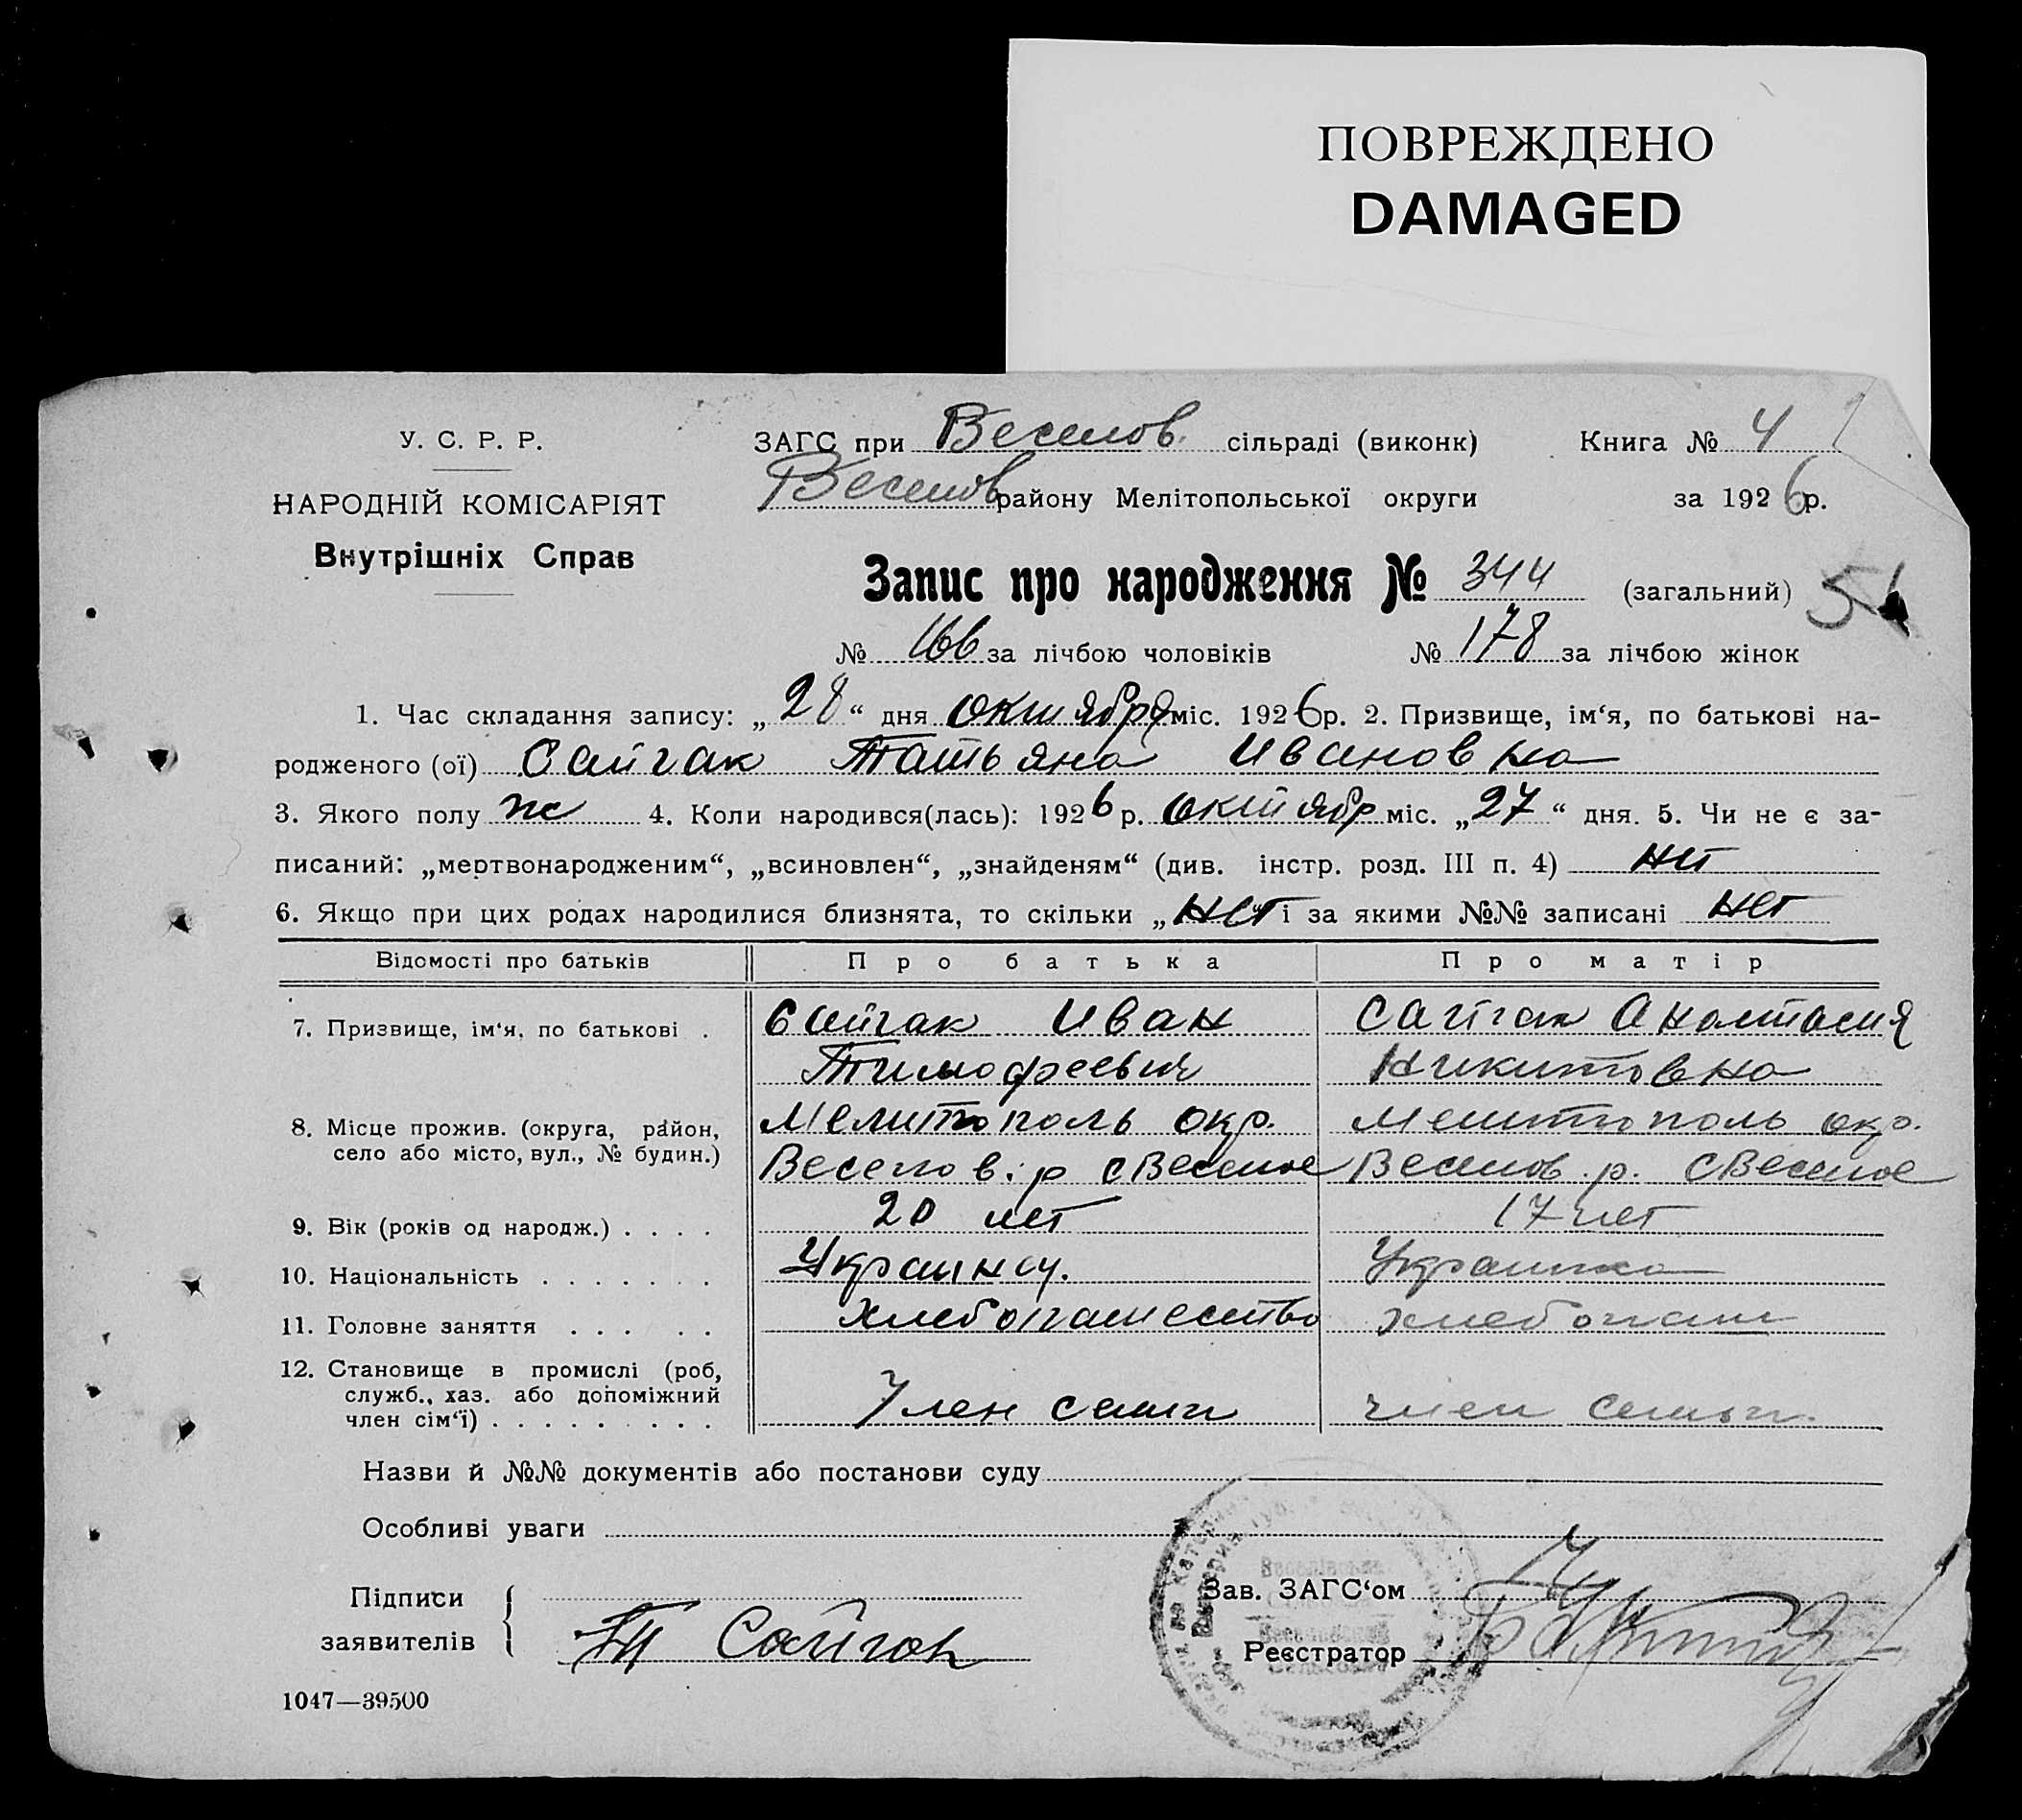 ПОВРЕЖДЕНО
DAMAGED
У. С. Р. Р.
НАРОДНІЙ КОМІСАРІЯТ
Внутрішніх Справ
ЗАГС при Веселов. сільраді (виконк) Книга № 4
Веселов району Мелітопольської округи за 1926 р.
Запис про народження № 344 (загальний) 51
№ 166 за лічбою чоловіків № 178 за лічбою жінок
1. Час складання запису: „28“ дня октября міс. 1926 р. 2. Призвище, ім‘я, по батькові на-
родженого (ої) Сайгак Татьяна Ивановна
3. Якого полу ж 4. Коли народився(лась): 1926 р. октябр міс. „27“ дня. 5. Чи не є за-
писаний: „мертвонародженим“, „всиновлен“, „знайденям“ (див. інстр. розд. III п. 4) нет
6. Якщо при цих родах народилися близнята, то скільки „нет і за якими №№ записані нет
Відомості про батьків Про батька Про матір
7. Призвище, ім‘я, по батькові . Сайгак Иван Сайгак Анастасия
Тимофеевич Никитовна
8. Місце прожив. (округа, район, Мелитополь окр. Мелитополь окр.
село або місто, вул., № будин.) Веселов. р с Веселое Веселов. р. с Веселое
9. Вік (років од народж.) . . . . 20 лет 17 лет
10. Національність . . . . . . . Украинец. Украинка
11. Головне заняття . . . . . Хлебопашество хлебопаш
12. Становище в промислі (роб,
служб., хаз. або допоміжний
член сім‘ї) . . . . . . . . Член семи член семьи.
Назви й №№ документів або постанови суду
Особливі уваги
Підписи
заявителів Сайгак
Зав. ЗАГС‘ом
Реєстратор
1047—39500